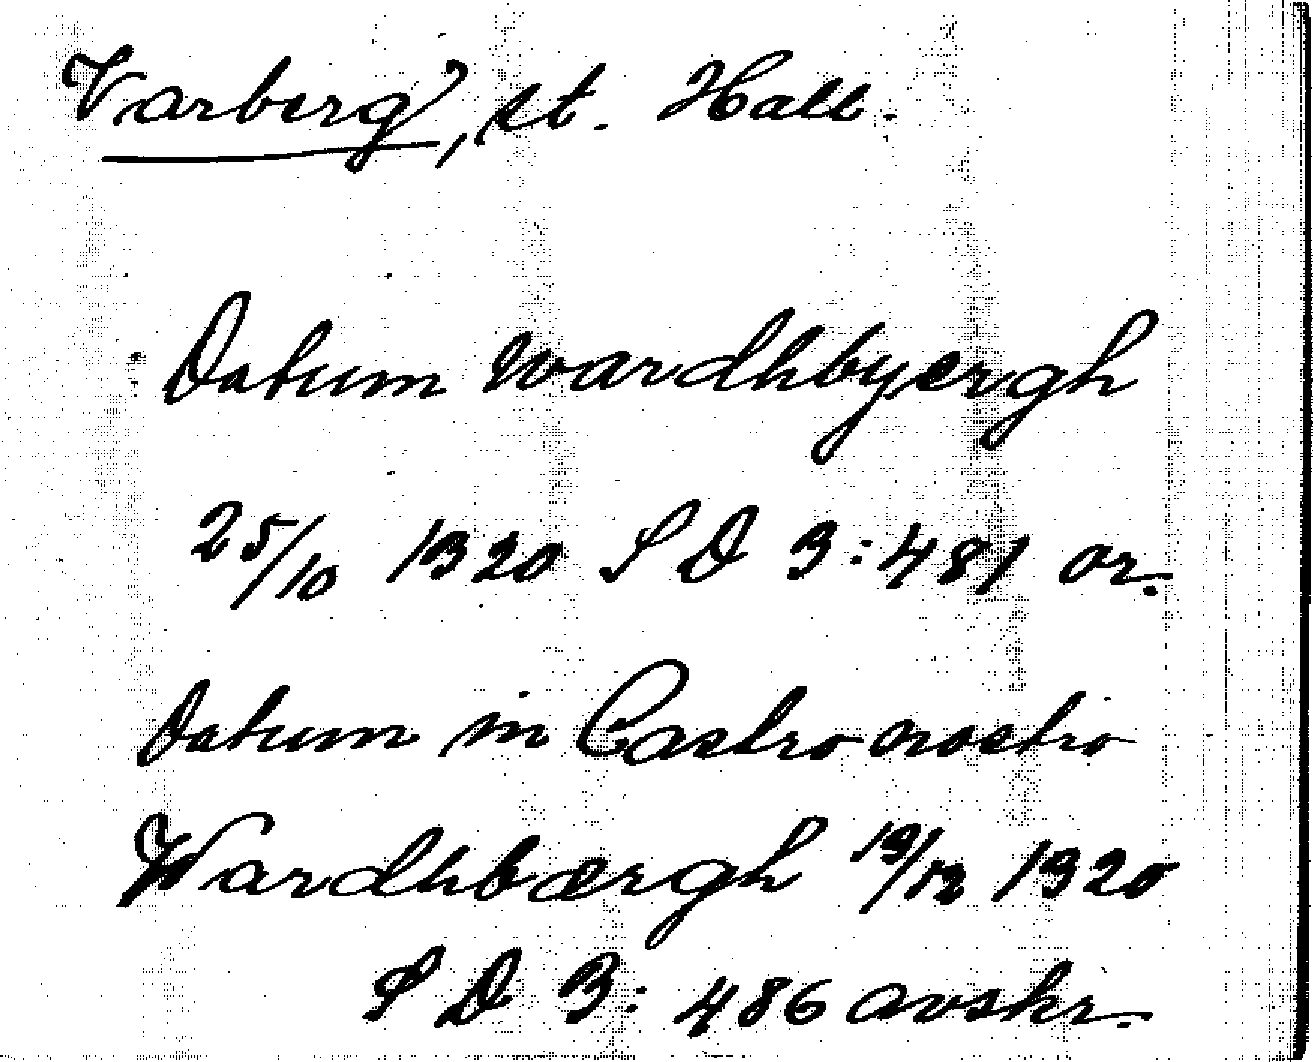 Varberg, st. Hall.
Datum wardhbyærgh
25/10 1320 S D 3:481 or.
Datum in Castro nostro
Wardhbærgh 19/12 1320
S D 3: 486 avskr.